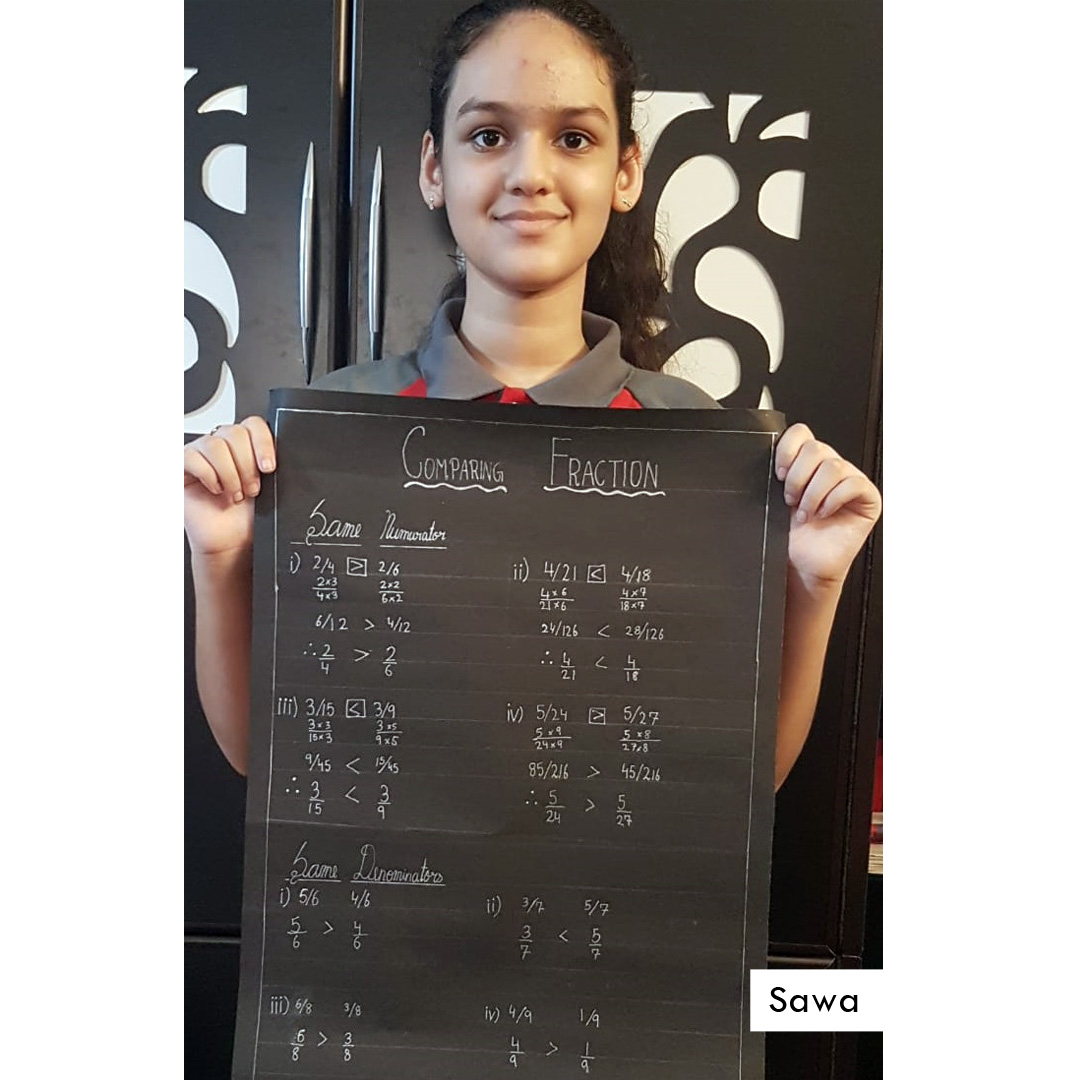 COMPARING FRACTION
Same Numurator
i) 2/4 > 2/6
2×3/4×3 2×2/6×2
6/12 > 4/12
∴ 2/4 > 2/6
ii) 4/21 < 4/18
4×6/21×6 4×7/18×7
24/126 < 28/126
∴ 4/21 < 4/18
iii) 3/15 < 3/9
3×3/15×3 3×5/9×5
9/45 < 15/45
∴ 3/15 < 3/9
iv) 5/24 > 5/27
5×9/24×9 5×8/27×8
85/216 > 45/216
∴ 5/24 > 5/27
Same Denominators
i) 5/6 4/6
5/6 > 4/6
ii) 3/7 5/7
3/7 < 5/7
iii) 6/8 3/8
6/8 > 3/8
iv) 4/9 1/9
4/9 > 1/9
Sawa